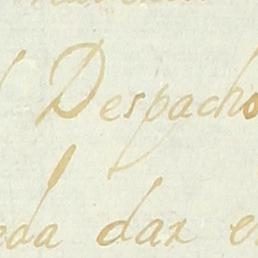 Despacho
eda dar e